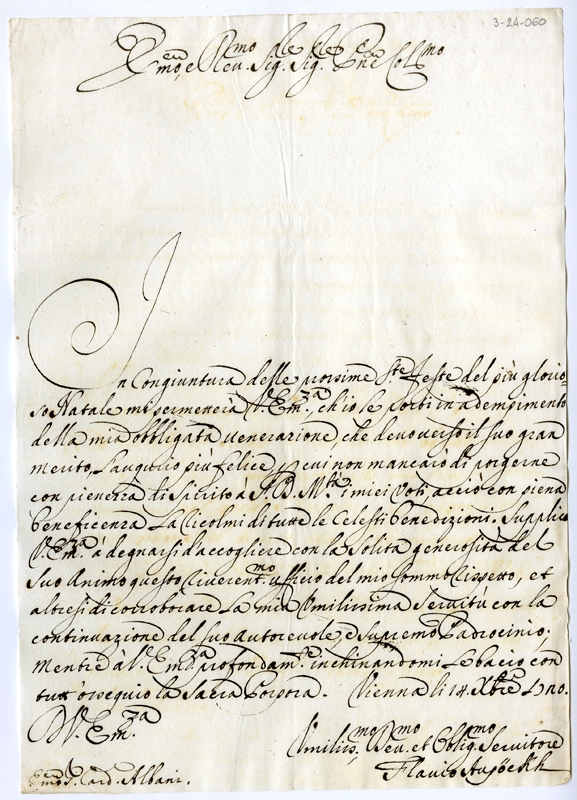 3-24-060
Em.mo, e Rev.mo Sig.re Sig.re P.ne Col.mo
In Congiuntura delle prossime S.te Feste del più glorio=
so Natale mi permenerà V. Em.za, ch'io le porti in adempimento
della mia obbligata venerazione che devo verso il suo gran
merito, l'augurio più felice, p cui non mancarò di porgerne
con pienezza di Spirito à S. D. M.tà i miei Voti, acciò con piena
beneficenza La Ricolmi di tutte le Celesti benedizioni. Supplico
V. Em.za à degnarsi d'accogliere con la Solita generosità del
Suo Animo questo Riverent.mo ufficio del mio Sommo Rispetto, et
altresi di corroborare La mia Umilissima Servitù con la
continuazione del suo Autorevole, e supremo Padrocinio;
mentre à V. Em.za profondam.te inchinandomi Le bacio con
tutt'ossequio la Sacra Porpora. Vienna li 14. Xbre
D V. Em.za
Umiliss.mo Dev.mo et Oblig.mo Servitore
Flavio
Em.o S. Card. Albani.